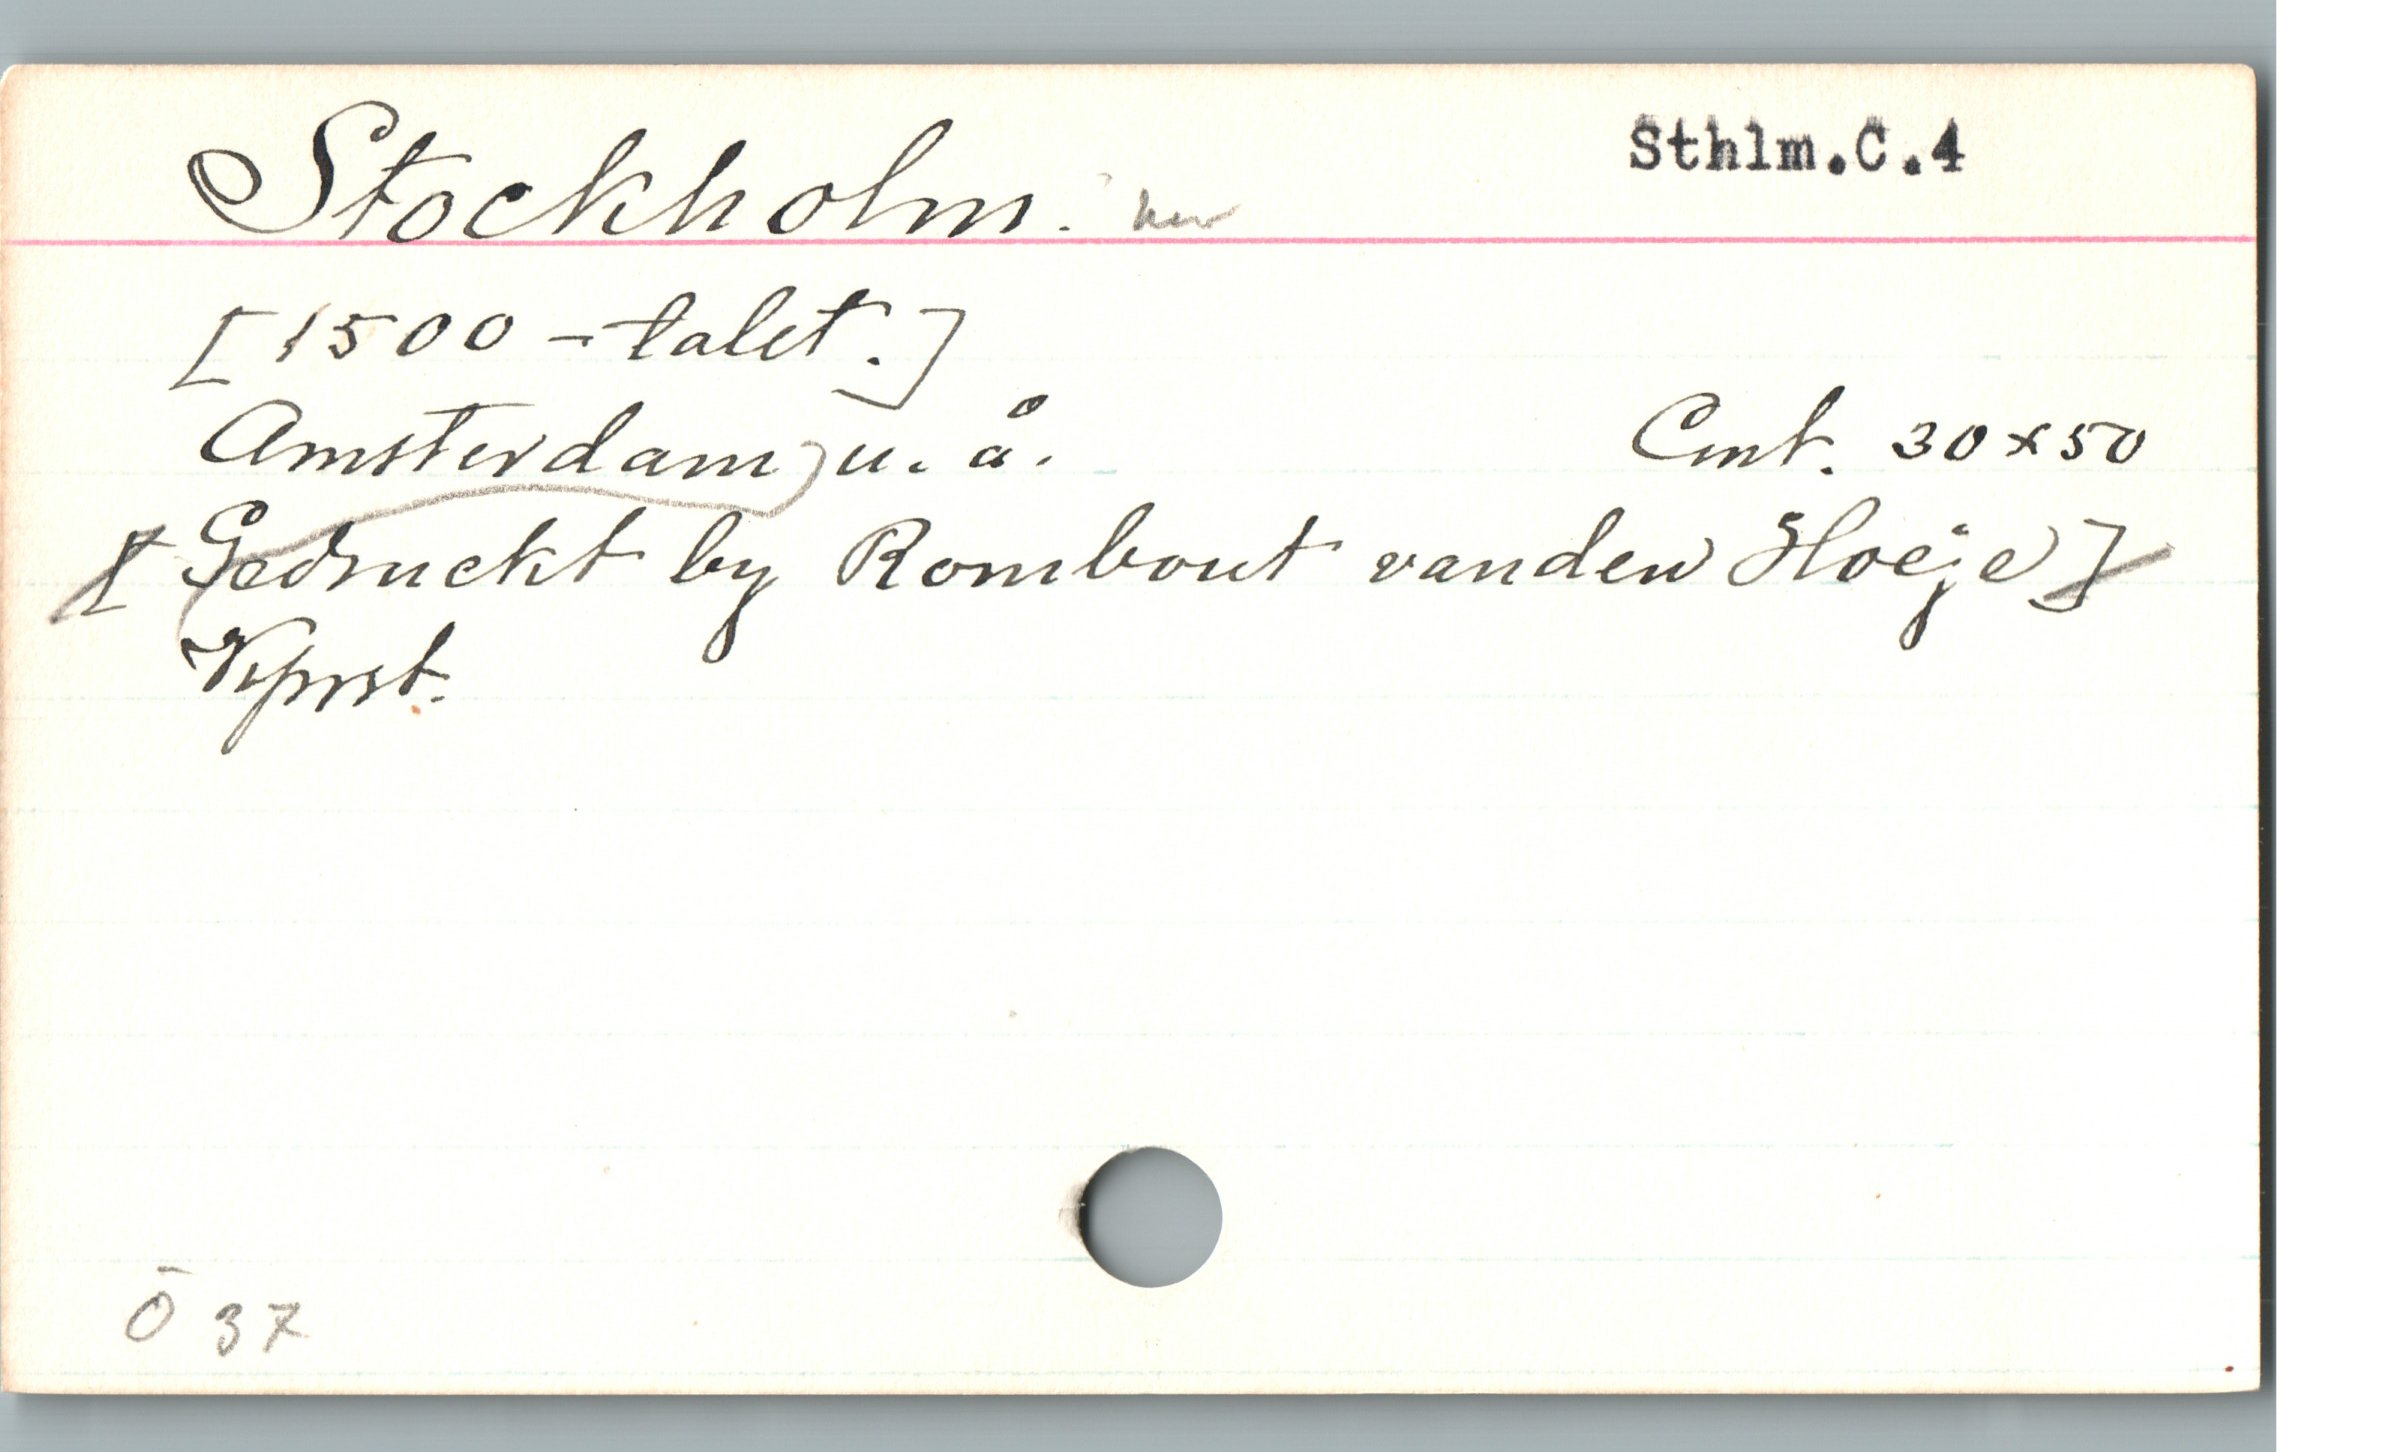 Stockholm.
Sthlm.C.4
[1500-talet.]
Amsterdam u. å.
Cmt. 30x50
[Gedruckt by Rombout vanden Hoeje]
Kprst.
Ö 37